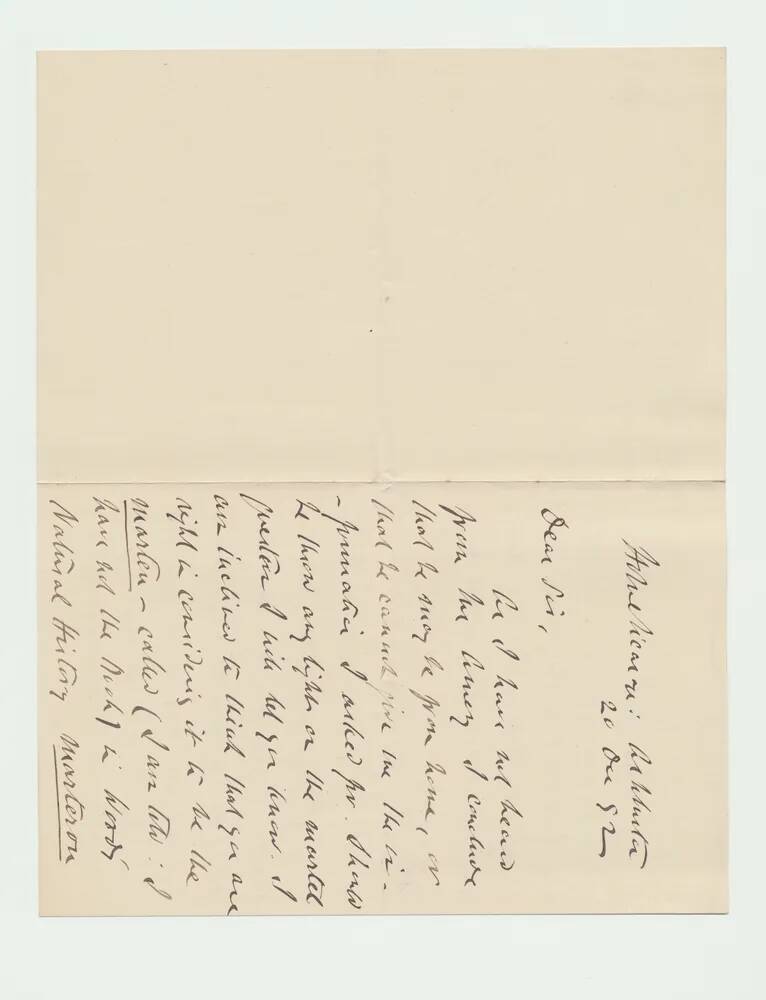 20 Dec 92
Dear Sir,
As I have not heard
from Mr I conclude
that he may be from home, or
that he cannot give me the in-
-formation I asked for. Should
he throw any light on the martel
question I will let you know. I
am inclined to think that you are
right in considering it to be the
Marten – called (I am told: I
have not the book) in Wood's
Natural History Marteron